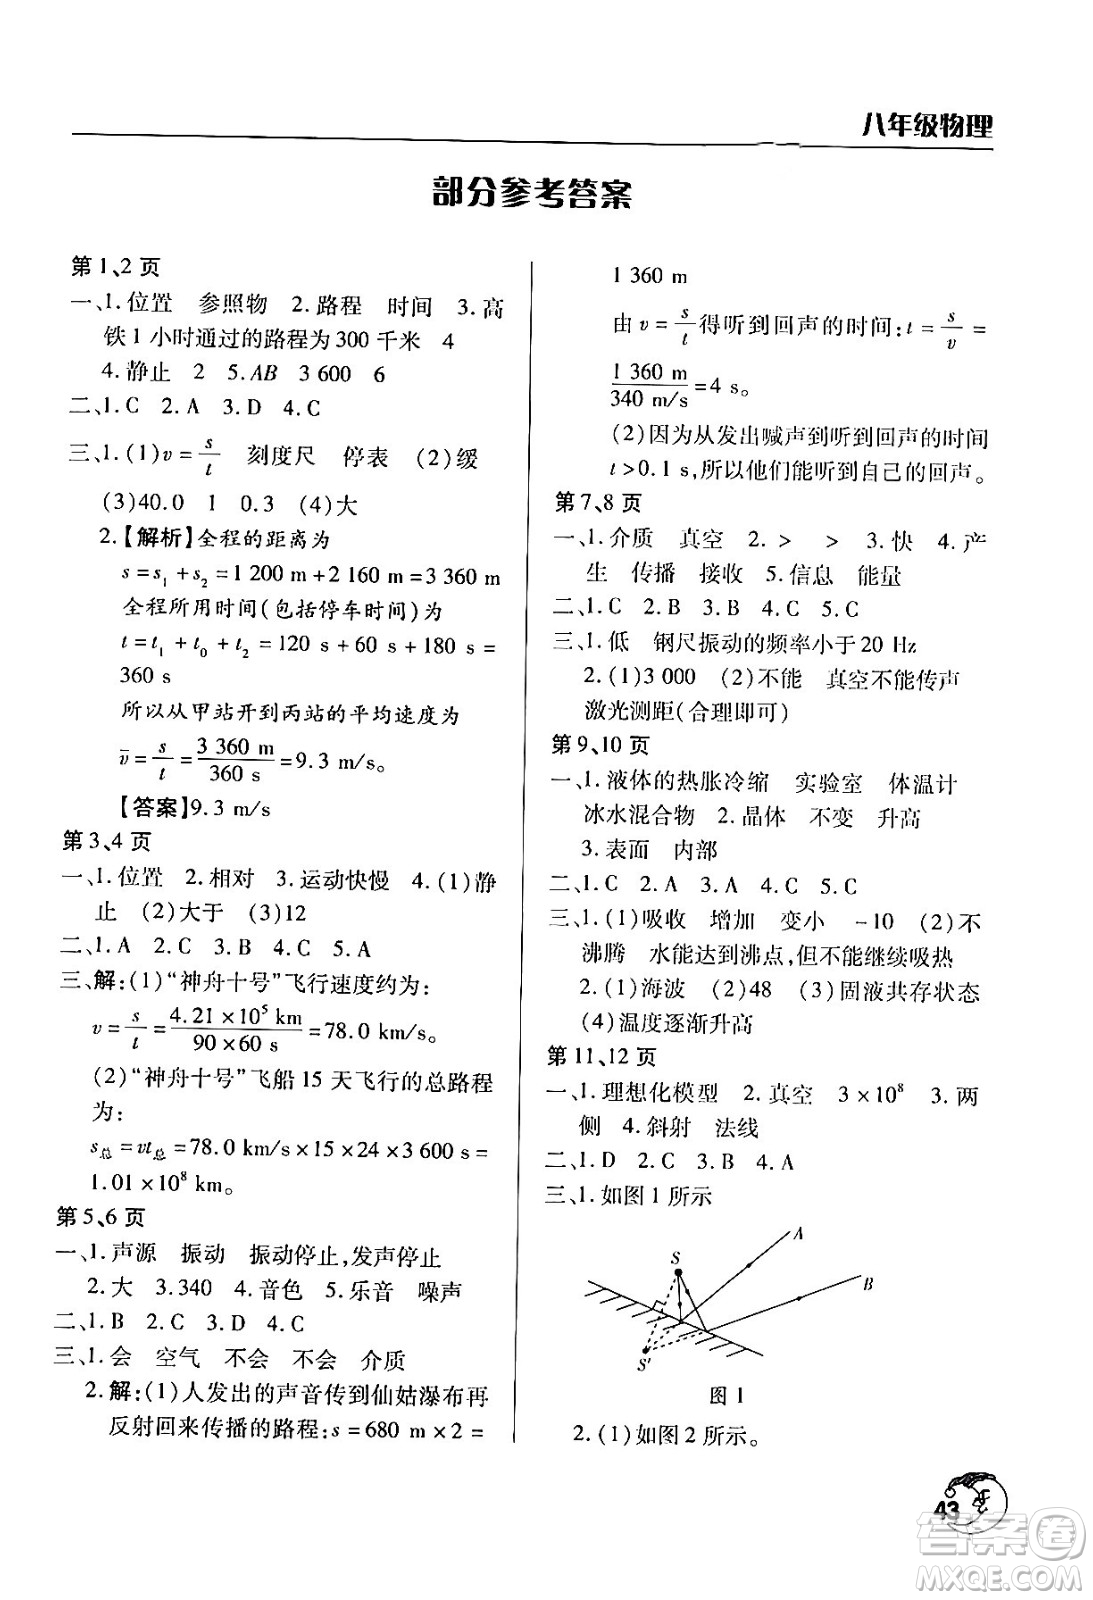 八年级物理
部分参考答案
第1、2页
一、1.位置 参照物 2.路程 时间 3.高
铁1小时通过的路程为300千米 4
4.静止 2 5.AB 3 600 6
二、1.C 2.A 3.D 4.C
三、1.(1)v=s/t 刻度尺 停表 (2)缓
(3)40.0 1 0.3 (4)大
2.【解析】全程的距离为
s=s₁+s₂=1 200 m+2 160 m=3 360 m
全程所用时间(包括停车时间)为
t=t₁+t₀+t₂=120 s+60 s+180 s=
360 s
所以从甲站开到丙站的平均速度为
v̄=s/t=3 360 m/360 s=9.3 m/s。
【答案】9.3 m/s
第3、4页
一、1.位置 2.相对 3.运动快慢 4.(1)静
止 (2)大于 (3)12
二、1.A 2.C 3.B 4.C 5.A
三、解:(1)“神舟十号”飞行速度约为:
v=s/t=4.21×10⁵ km/90×60 s=78.0 km/s。
(2)“神舟十号”飞船15天飞行的总路程
为:
s总=vt总=78.0 km/s×15×24×3 600 s=
1.01×10⁸ km。
第5、6页
一、1.声源 振动 振动停止,发声停止
2.大 3.340 4.音色 5.乐音 噪声
二、1.B 2.C 3.D 4.C
三、1.会 空气 不会 不会 介质
2.解:(1)人发出的声音传到仙姑瀑布再
反射回来传播的路程:s=680 m×2=
1 360 m
由v=s/t得听到回声的时间:t=s/v=
1 360 m/340 m/s=4 s。
(2)因为从发出喊声到听到回声的时间
t>0.1 s,所以他们能听到自己的回声。
第7、8页
一、1.介质 真空 2.> > 3.快 4.产
生 传播 接收 5.信息 能量
二、1.C 2.B 3.A 4.C 5.C
三、1.低 钢尺振动的频率小于20 Hz
2.(1)3 000 (2)不能 真空不能传声
激光测距(合理即可)
第9、10页
一、1.液体的热胀冷缩 实验室 体温计
冰水混合物 2.晶体 不变 升高
3.表面 内部
二、1.C 2.B 3.A 4.A 5.C
三、1.(1)吸收 增加 变小 -10 (2)不
沸腾 水能达到沸点,但不能继续吸热
2.(1)海波 (2)48 (3)固液共存状态
(4)温度逐渐升高
第11、12页
一、1.理想化模型 2.真空 3×10⁸ 3.两
侧 4.斜射 法线
二、1.D 2.C 3.B 4.A
三、1.如图1所示
A
S
B
S′
图1
2.(1)如图2所示。
43
答案卷
MXQE.COM